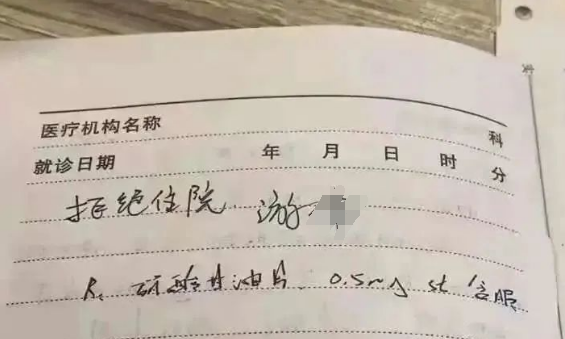 医疗机构名称 科
就诊日期 年 月 日 时 分
拒绝住院 游
R: 硝酸甘油片 0.5mg st 含服